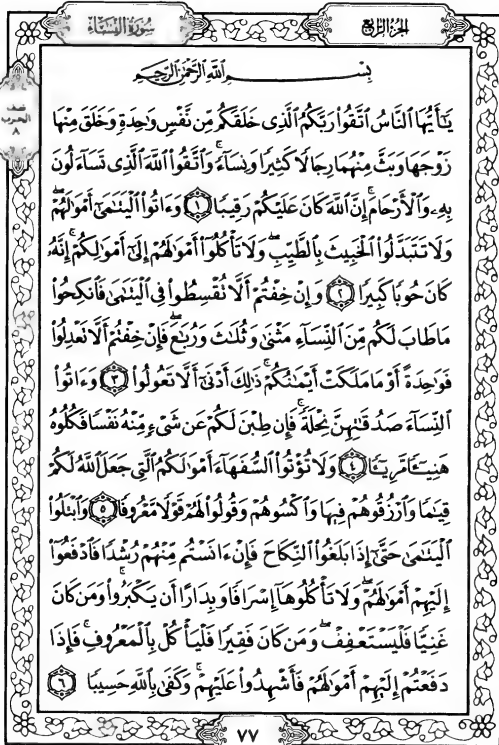 الجزء الرابع
سورة النساء
نصف
الحزب
٨
بسم الله الرحمن الرحيم
يَٰٓأَيُّهَا ٱلنَّاسُ ٱتَّقُوا۟ رَبَّكُمُ ٱلَّذِى خَلَقَكُم مِّن نَّفْسٍ وَٰحِدَةٍ وَخَلَقَ مِنْهَا
زَوْجَهَا وَبَثَّ مِنْهُمَا رِجَالًا كَثِيرًا وَنِسَآءً ۚ وَٱتَّقُوا۟ ٱللَّهَ ٱلَّذِى تَسَآءَلُونَ
بِهِۦ وَٱلْأَرْحَامَ ۚ إِنَّ ٱللَّهَ كَانَ عَلَيْكُمْ رَقِيبًا ١ وَءَاتُوا۟ ٱلْيَتَٰمَىٰٓ أَمْوَٰلَهُمْ ۖ
وَلَا تَتَبَدَّلُوا۟ ٱلْخَبِيثَ بِٱلطَّيِّبِ ۖ وَلَا تَأْكُلُوٓا۟ أَمْوَٰلَهُمْ إِلَىٰٓ أَمْوَٰلِكُمْ ۚ إِنَّهُۥ
كَانَ حُوبًا كَبِيرًا ٢ وَإِنْ خِفْتُمْ أَلَّا تُقْسِطُوا۟ فِى ٱلْيَتَٰمَىٰ فَٱنكِحُوا۟
مَا طَابَ لَكُم مِّنَ ٱلنِّسَآءِ مَثْنَىٰ وَثُلَٰثَ وَرُبَٰعَ ۖ فَإِنْ خِفْتُمْ أَلَّا تَعْدِلُوا۟
فَوَٰحِدَةً أَوْ مَا مَلَكَتْ أَيْمَٰنُكُمْ ۚ ذَٰلِكَ أَدْنَىٰٓ أَلَّا تَعُولُوا۟ ٣ وَءَاتُوا۟
ٱلنِّسَآءَ صَدُقَٰتِهِنَّ نِحْلَةً ۚ فَإِن طِبْنَ لَكُمْ عَن شَىْءٍ مِّنْهُ نَفْسًا فَكُلُوهُ
هَنِيٓـًٔا مَّرِيٓـًٔا ٤ وَلَا تُؤْتُوا۟ ٱلسُّفَهَآءَ أَمْوَٰلَكُمُ ٱلَّتِى جَعَلَ ٱللَّهُ لَكُمْ
قِيَٰمًا وَٱرْزُقُوهُمْ فِيهَا وَٱكْسُوهُمْ وَقُولُوا۟ لَهُمْ قَوْلًا مَّعْرُوفًا ٥ وَٱبْتَلُوا۟
ٱلْيَتَٰمَىٰ حَتَّىٰٓ إِذَا بَلَغُوا۟ ٱلنِّكَاحَ فَإِنْ ءَانَسْتُم مِّنْهُمْ رُشْدًا فَٱدْفَعُوٓا۟
إِلَيْهِمْ أَمْوَٰلَهُمْ ۖ وَلَا تَأْكُلُوهَآ إِسْرَافًا وَبِدَارًا أَن يَكْبَرُوا۟ ۚ وَمَن كَانَ
غَنِيًّا فَلْيَسْتَعْفِفْ ۖ وَمَن كَانَ فَقِيرًا فَلْيَأْكُلْ بِٱلْمَعْرُوفِ ۚ فَإِذَا
دَفَعْتُمْ إِلَيْهِمْ أَمْوَٰلَهُمْ فَأَشْهِدُوا۟ عَلَيْهِمْ ۚ وَكَفَىٰ بِٱللَّهِ حَسِيبًا ٦
٧٧